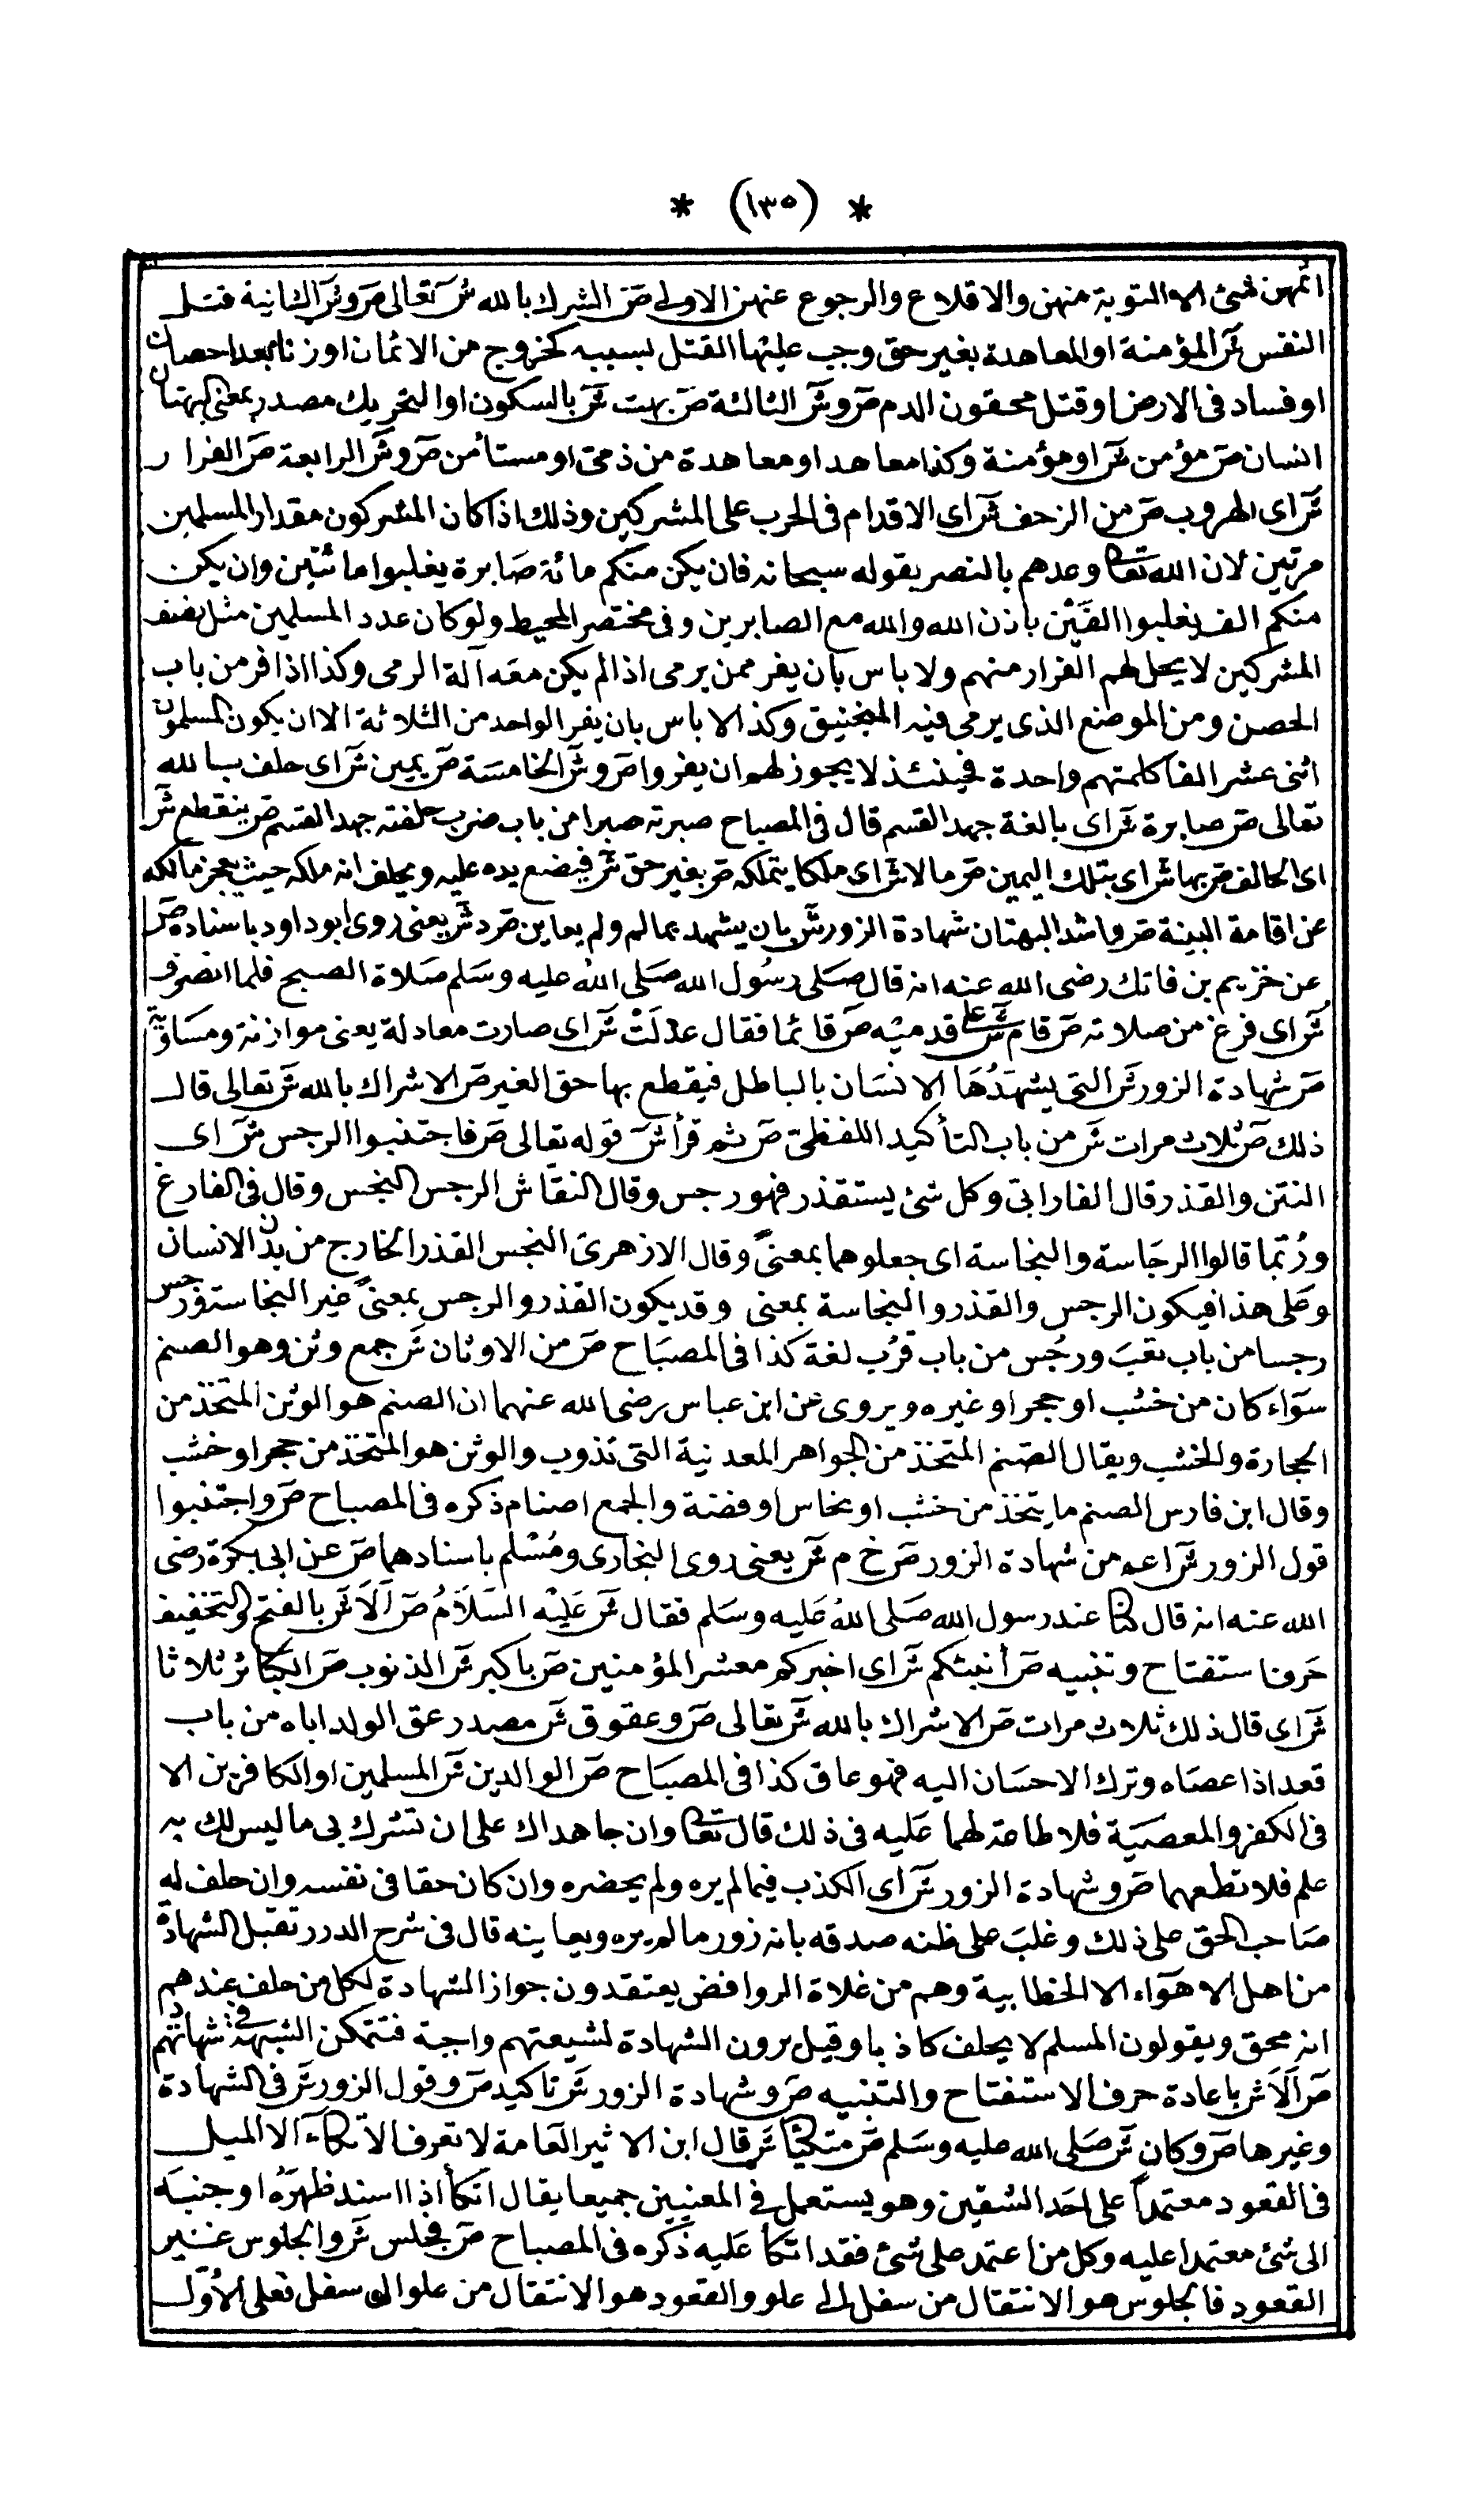 * (١٣٥) *
اثمهن شئ الا التوبة منهن والاقلاع والرجوع عنهن الاولى صَ الشرك بالله شَ تعالى صَ وشَ الثانية قتل
النفس شَ المؤمنة او المعاهدة بغير حق وجب عليها القتل بسببه كخروج من الائمان او زنا بعد احصان
او فساد فى الارض او قتل محقون الدم صَ وشَ الثالثة صَ بهت شَ بالسكون او التحريك مصدر بمعنى البهتان
انسان صَ مؤمن شَ او مؤمنة وكذا معاهد او معاهدة من ذمى او مستأمن صَ وشَ الرابعة صَ الفرار
شَ اى الهروب صَ من الزحف شَ اى الاقدام فى الحرب على المشركين وذلك اذا كان المشركون مقدار المسلمين
مرتين لان الله تعا وعدهم بالنصر بقوله سبحانه فان يكن منكم مائة صَابرة يغلبوا مائتين وان يكن
منكم الف يغلبوا الفَيْن باذن الله والله مع الصابرين وفى مختصر المحيط ولو كان عدد المسلمين مثل نصف
المشركين لا يحل لهم الفرار منهم ولا باس بان يفر ممن يرمى اذا لم يكن معَه آلة الرمى وكذا اذا فر من باب
الحصن ومن الموضع الذى يرمى فيه المنجنيق وكذا لا باس بان يفر الواحد من الثلاثة الا ان يكون المسلمون
اثنى عشر الفا كلمتهم واحدة فحينئذ لا يجوز لهم ان يفروا صَ وشَ الخامسَة صَ يمين شَ اى حلف بالله
تعالى صَ صابرة شَ اى بالغة جهد القسم قال فى المصباح صبرته صبرا من باب ضرب حلفته جهد القسم صَ ينقطع شَ
اى الحالف صَ بها شَ اى بتلك اليمين صَ مالا شَ اى ملكا يتملكه صَ بغير حق شَ فيضع يده عليه ويحلف انه ملكه حيث يعجز مالكه
عن اقامة البينة صَ واشد البهتان شهادة الزور شَ بان يشهد بما لم ولم يعاين صَ د شَ يعنى روى ابو داود باسناده صَ
عن خزيم بن فاتك رضى الله عنه انه قال صَلى رسُول الله صَلى اللهُ عليه وسَلم صَلاة الصبح فلما انصرف
شَ اى فرغ من صلاته صَ قام شَ على قدميْه صَ قائما فقال عدَلَتْ شَ اى صارت معادلة يعنى موازنة ومسَاوية
صَ شهادة الزور شَ التى يشهَدُهَا الانسَان بالباطل فيقطع بها حق الغير صَ الاشراك بالله شَ تعالى قال
ذلك صَ ثلاث مرات شَ من باب التأكيد اللفظىّ صَ ثم قرأ شَ قوله تعالى صَ فاجتنبوا الرجس شَ اى
النتن والقذر قال الفارابىّ وكل شئ يستقذر فهو رجس وقال النقّاش الرجس النجس وقال فى الفارغ
ورُبّما قالوا الرجَاسة والنجاسة اى جعلوهما بمعنىً وقال الازهرىّ النجس القذر الخارج من بدن الانسان
وعَلى هذا فيكون الرجس والقذر والنجاسة بمعنى وقد يكون القذر والرجس بمعنىً غير النجاسة ورجس
رجسا من باب تعَبَ ورجُس من باب قرُب لغة كذا فى المصبَاح صَ من الاوثان شَ جمع وثن وهو الصنم
سوَاء كان من خشب او حجر او غيره ويروى عن ابن عباس رضى الله عنهما ان الصنم هو الوثن المتخذ من
الحجارة والخشب ويقال الصَنم المتخذ من الجواهر المعدنية التى تذوب والوثن هو المتخذ من حجر او خشب
وقال ابن فارس الصنم ما يتخذ من خشب او نحاس او فضة والجمع اصنام ذكره فى المصباح صَ واجتنبوا
قول الزور شَ اعـ من شهادة الزور صَ خ م شَ يعنى روى البخارى ومُسْلم باسنادهما صَ عن ابى بكرة رضى
الله عنه انه قال كنا عند رسول الله صَلى اللهُ عَليه وسَلم فقال شَ عَليْه السَلاَمُ صَ اَلاَ شَ بالفتح والتخفيف
حَرف استفتاح وتنبيه صَ أنبئكم شَ اى اخبركم معشر المؤمنين صَ باكبر شَ الذنوب صَ الكبائر ثلاثا
شَ اى قال ذلك ثلاث مرات صَ الاشراك بالله شَ تعالى صَ وعقوق شَ مصدر عق الولد اباه من باب
قعد اذا عصَاه وترك الاحسَان اليه فهو عاق كذا فى المصبَاح صَ الوالدين شَ المسلمين او الكافرين الا
فى الكفر والمعصَية فلا طاعة لهما عَليه فى ذلك قال تعا وان جاهداك على ان تشرك بى ما ليس لك به
علم فلا تطعهما صَ وشهادة الزور شَ اى الكذب فيما لم يره ولم يحضره وان كان حقا فى نفسه وان حلف له
صَاحب الحق على ذلك وغلبَ على ظنه صدقه بانه زور ما لم يره ويعاينه قال فى شرح الدرر تقبل الشهادة
من اهل الاهوَاء الا الخطابية وهم من غلاة الروافض يعتقدون جواز الشهادة لكل من حلف عندهم
انه محق ويقولون المسلم لا يحلف كاذبا وقيل يرون الشهادة لشيعتهم واجبة فتتمكن الشبهة فى شهادتهم
صَ اَلاَ شَ باعادة حرف الاستفتاح والتنبيه صَ وشهادة الزور شَ تاكيد صَ وقول الزور شَ فى الشهادة
وغيرها صَ وكان شَ صَلى الله عليه وسَلم صَ متكئا شَ قال ابن الاثير العَامة لا تعرف الاتكاء الا الميل
فى القعود معتمداً على احَد الشقين وهو يستعمل فى المعنيين جميعا يقال اتكأ اذا اسند ظهرَهُ او جنبَه
الى شئ معتمدا عليه وكل من اعتمد على شئ فقد اتكأ عَليه ذكره فى المصباح صَ فجلس شَ والجلوس غير
القعود فالجلوس هو الانتقال من سفل الى علو والقعود هو الانتقال من علو الى سفل فعلى الأوّل